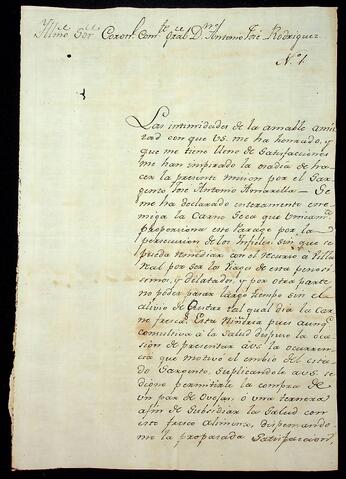 Illmo Sor Coronl Comte Gral Dn Antonio José Rodriguez
N.º 1.
Las intimidades de la amable amis
tad con que VS. me ha honrado, y
que me tiene lleno de satisfacciones
me han inspirado la osadia de ha
cer la presente mision por el Sar
gento José Antonio Amarilla - Se
me ha declarado enteramente ene
miga la Carne Seca que unicamte
proporciona este parage por la
persecucion de los Infieles, sin que se
pueda remediar con el recurso a Villa
Real por ser los viages de esta penosis
simos, y dilatados, y por otra parte
no poder pasar largo tiempo sin el
alivio de gustar tal qual dia la Car
ne fresca. Esta pues aunqe
a la Salud dispuso la oca
sion de presentar a VS. la ocurren
cia que motivó el embio del cita
do Sargento, suplicandole a VS. se
digne permitirle la compra de
un par de Ovejas, ó una ternera
a fin de subsidiar la Salud con
este fresco alimento, dispensando
me la propasada Satisfaccion,